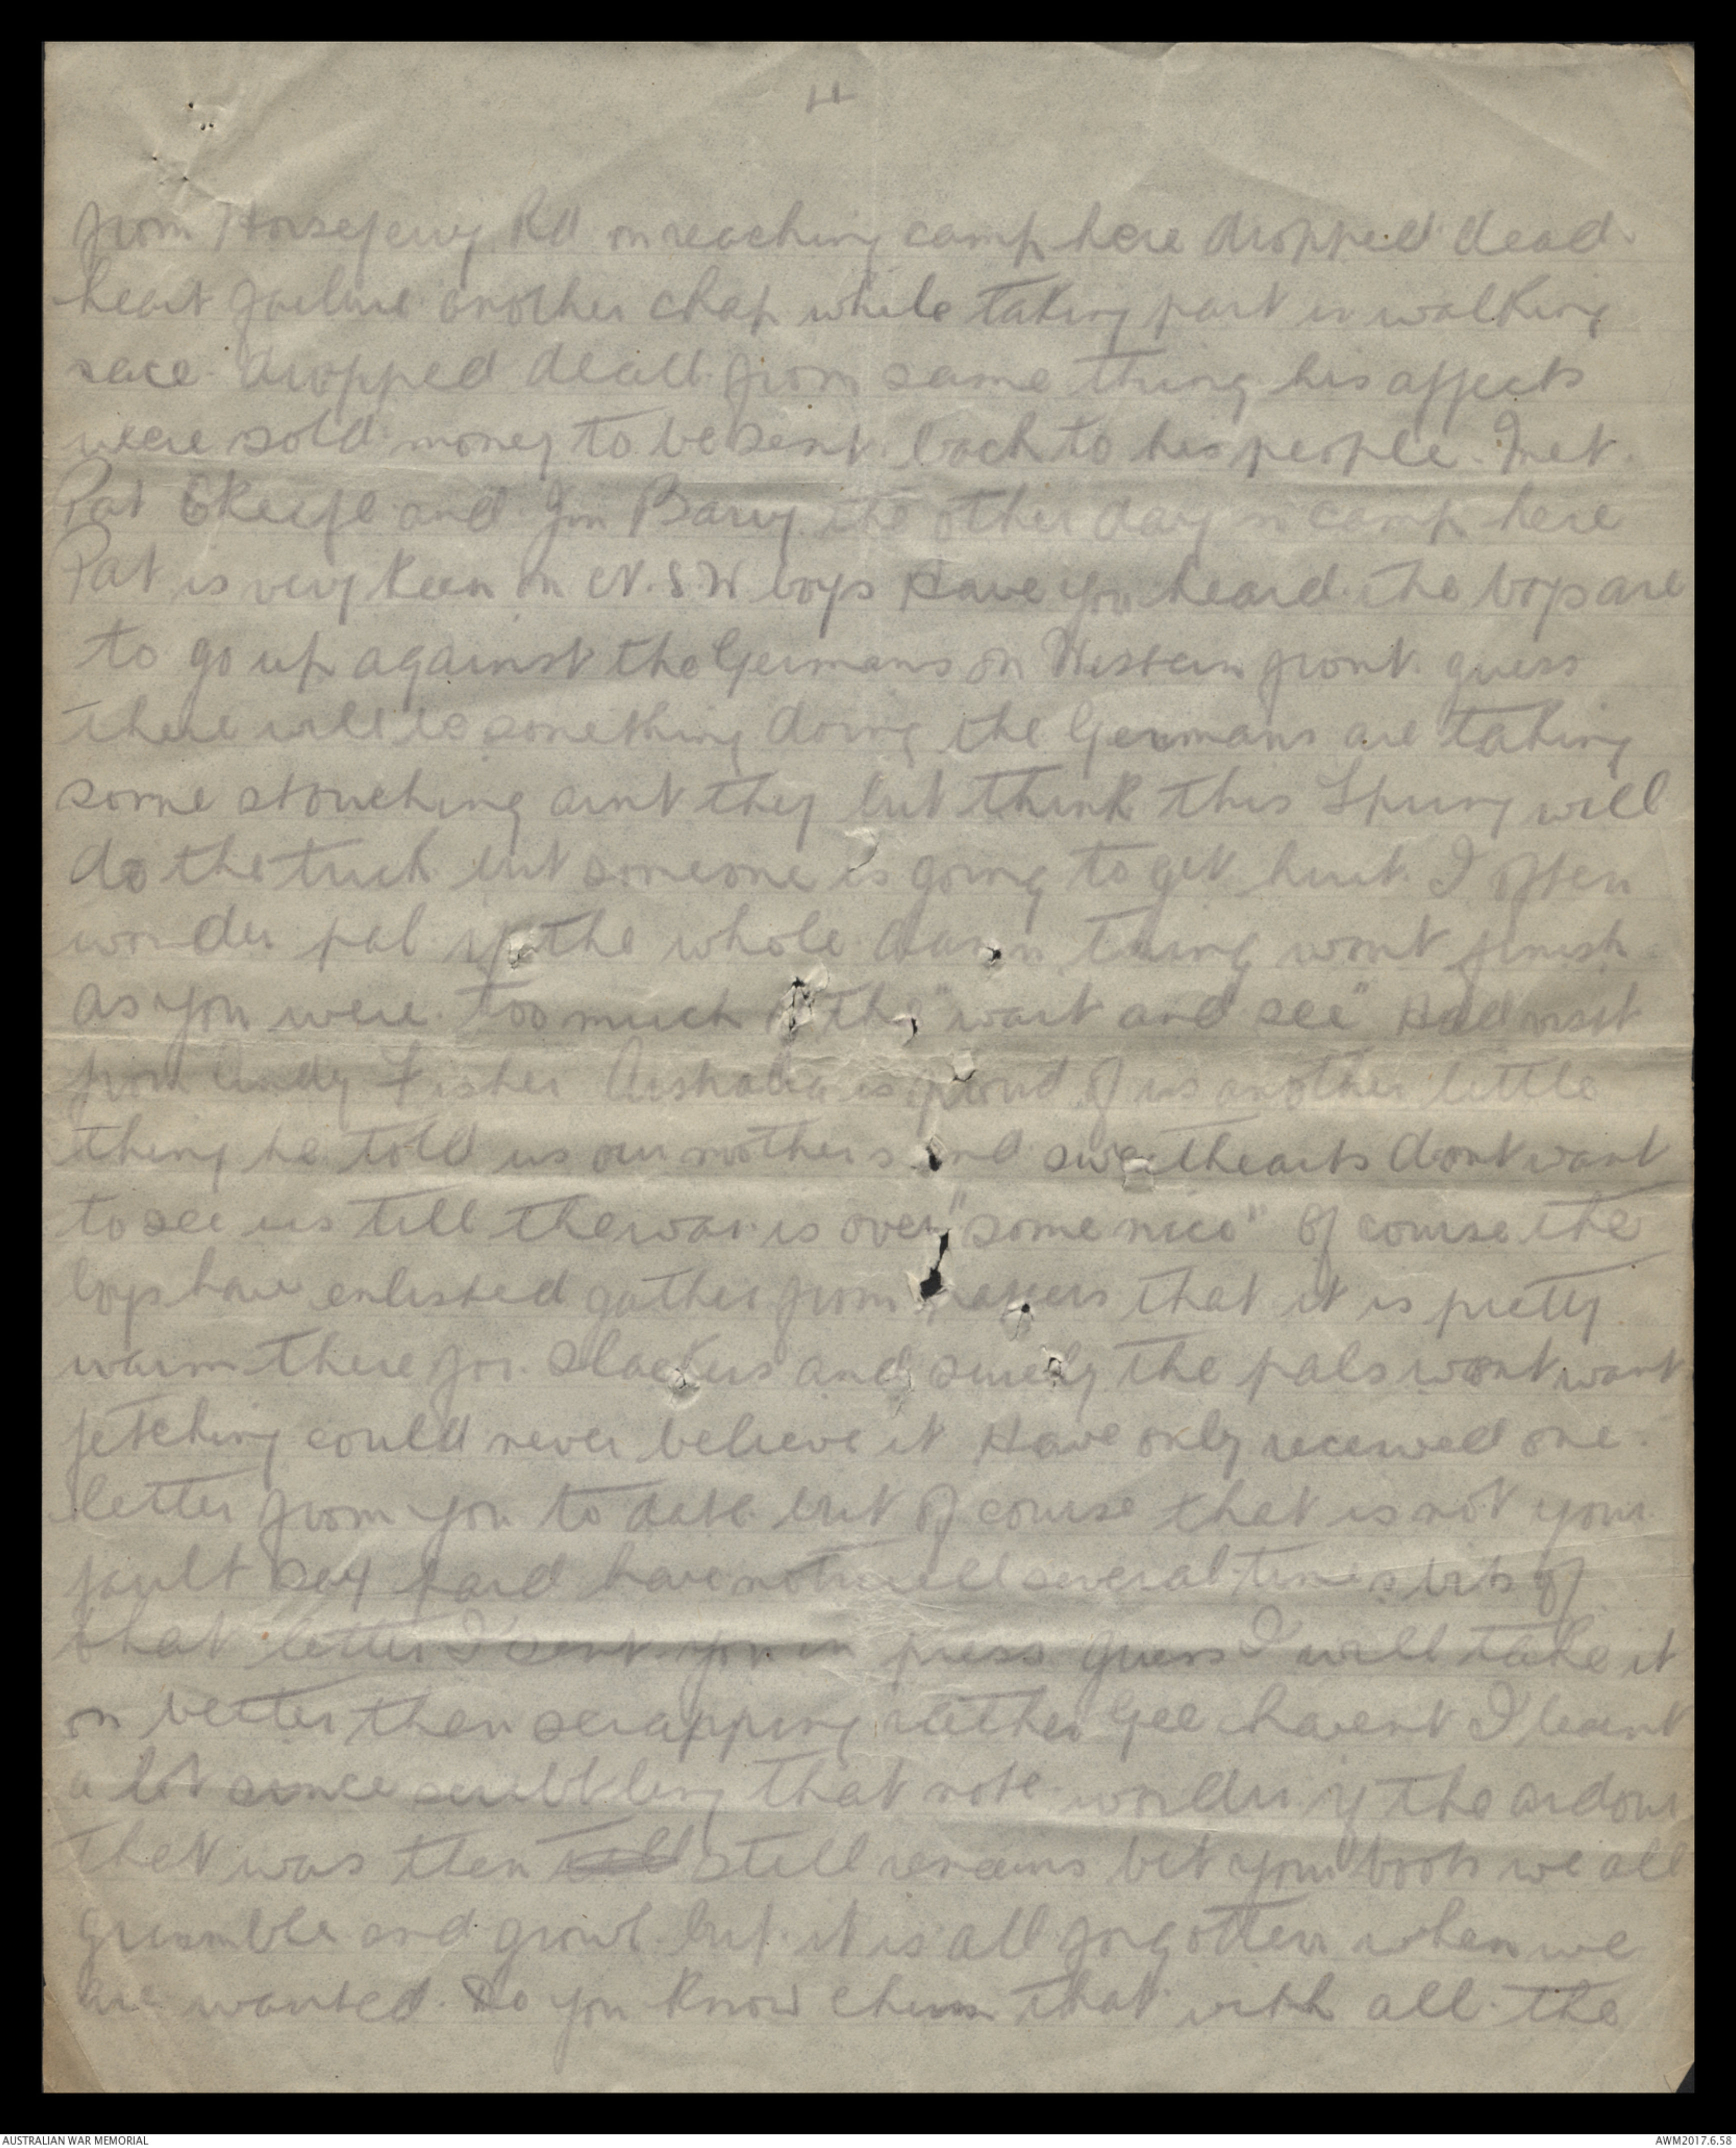 4
from Horseferry Rd on reaching camp here dropped dead
heart failure another chap while taking part in walking
race dropped dead from same thing his affects
were sold money to be sent back to his people. Met
Pat OKeefe and Jim Barry the other day in camp here
Pat is very keen on N.S.W boys Have you heard the boys are
to go up against the Germans on Western front guess
there will be something doing the Germans are taking
some stouching aint they but think this Spring will
do the trick but someone is going to get hurt I often
wonder pal if the whole damn thing wont finish
as you were. too much of the "wait and see" Had visit
from Andy Fisher Australia is proud of us another little
thing he told us our mothers and sweethearts dont want
to see us till the war is over "some nice" Of course the
boys have enlisted gather from papers that it is pretty
warm there for slackers and surely the pals wont want
fetching could never believe it Have only received one
letter from you to date but of course that is not your
fault Say pard have noticed several times bits of
that letter I sent you in press guess I will take it
on better than scrapping rather Gee havent I learnt
a lot since scribbling that note wonder if the ardour
that was then still remains bet your boots we all
grumble and growl but it is all forgotten when we
are wanted. Do you know chum that with all the
AUSTRALIAN WAR MEMORIAL
AWM2017.6.58